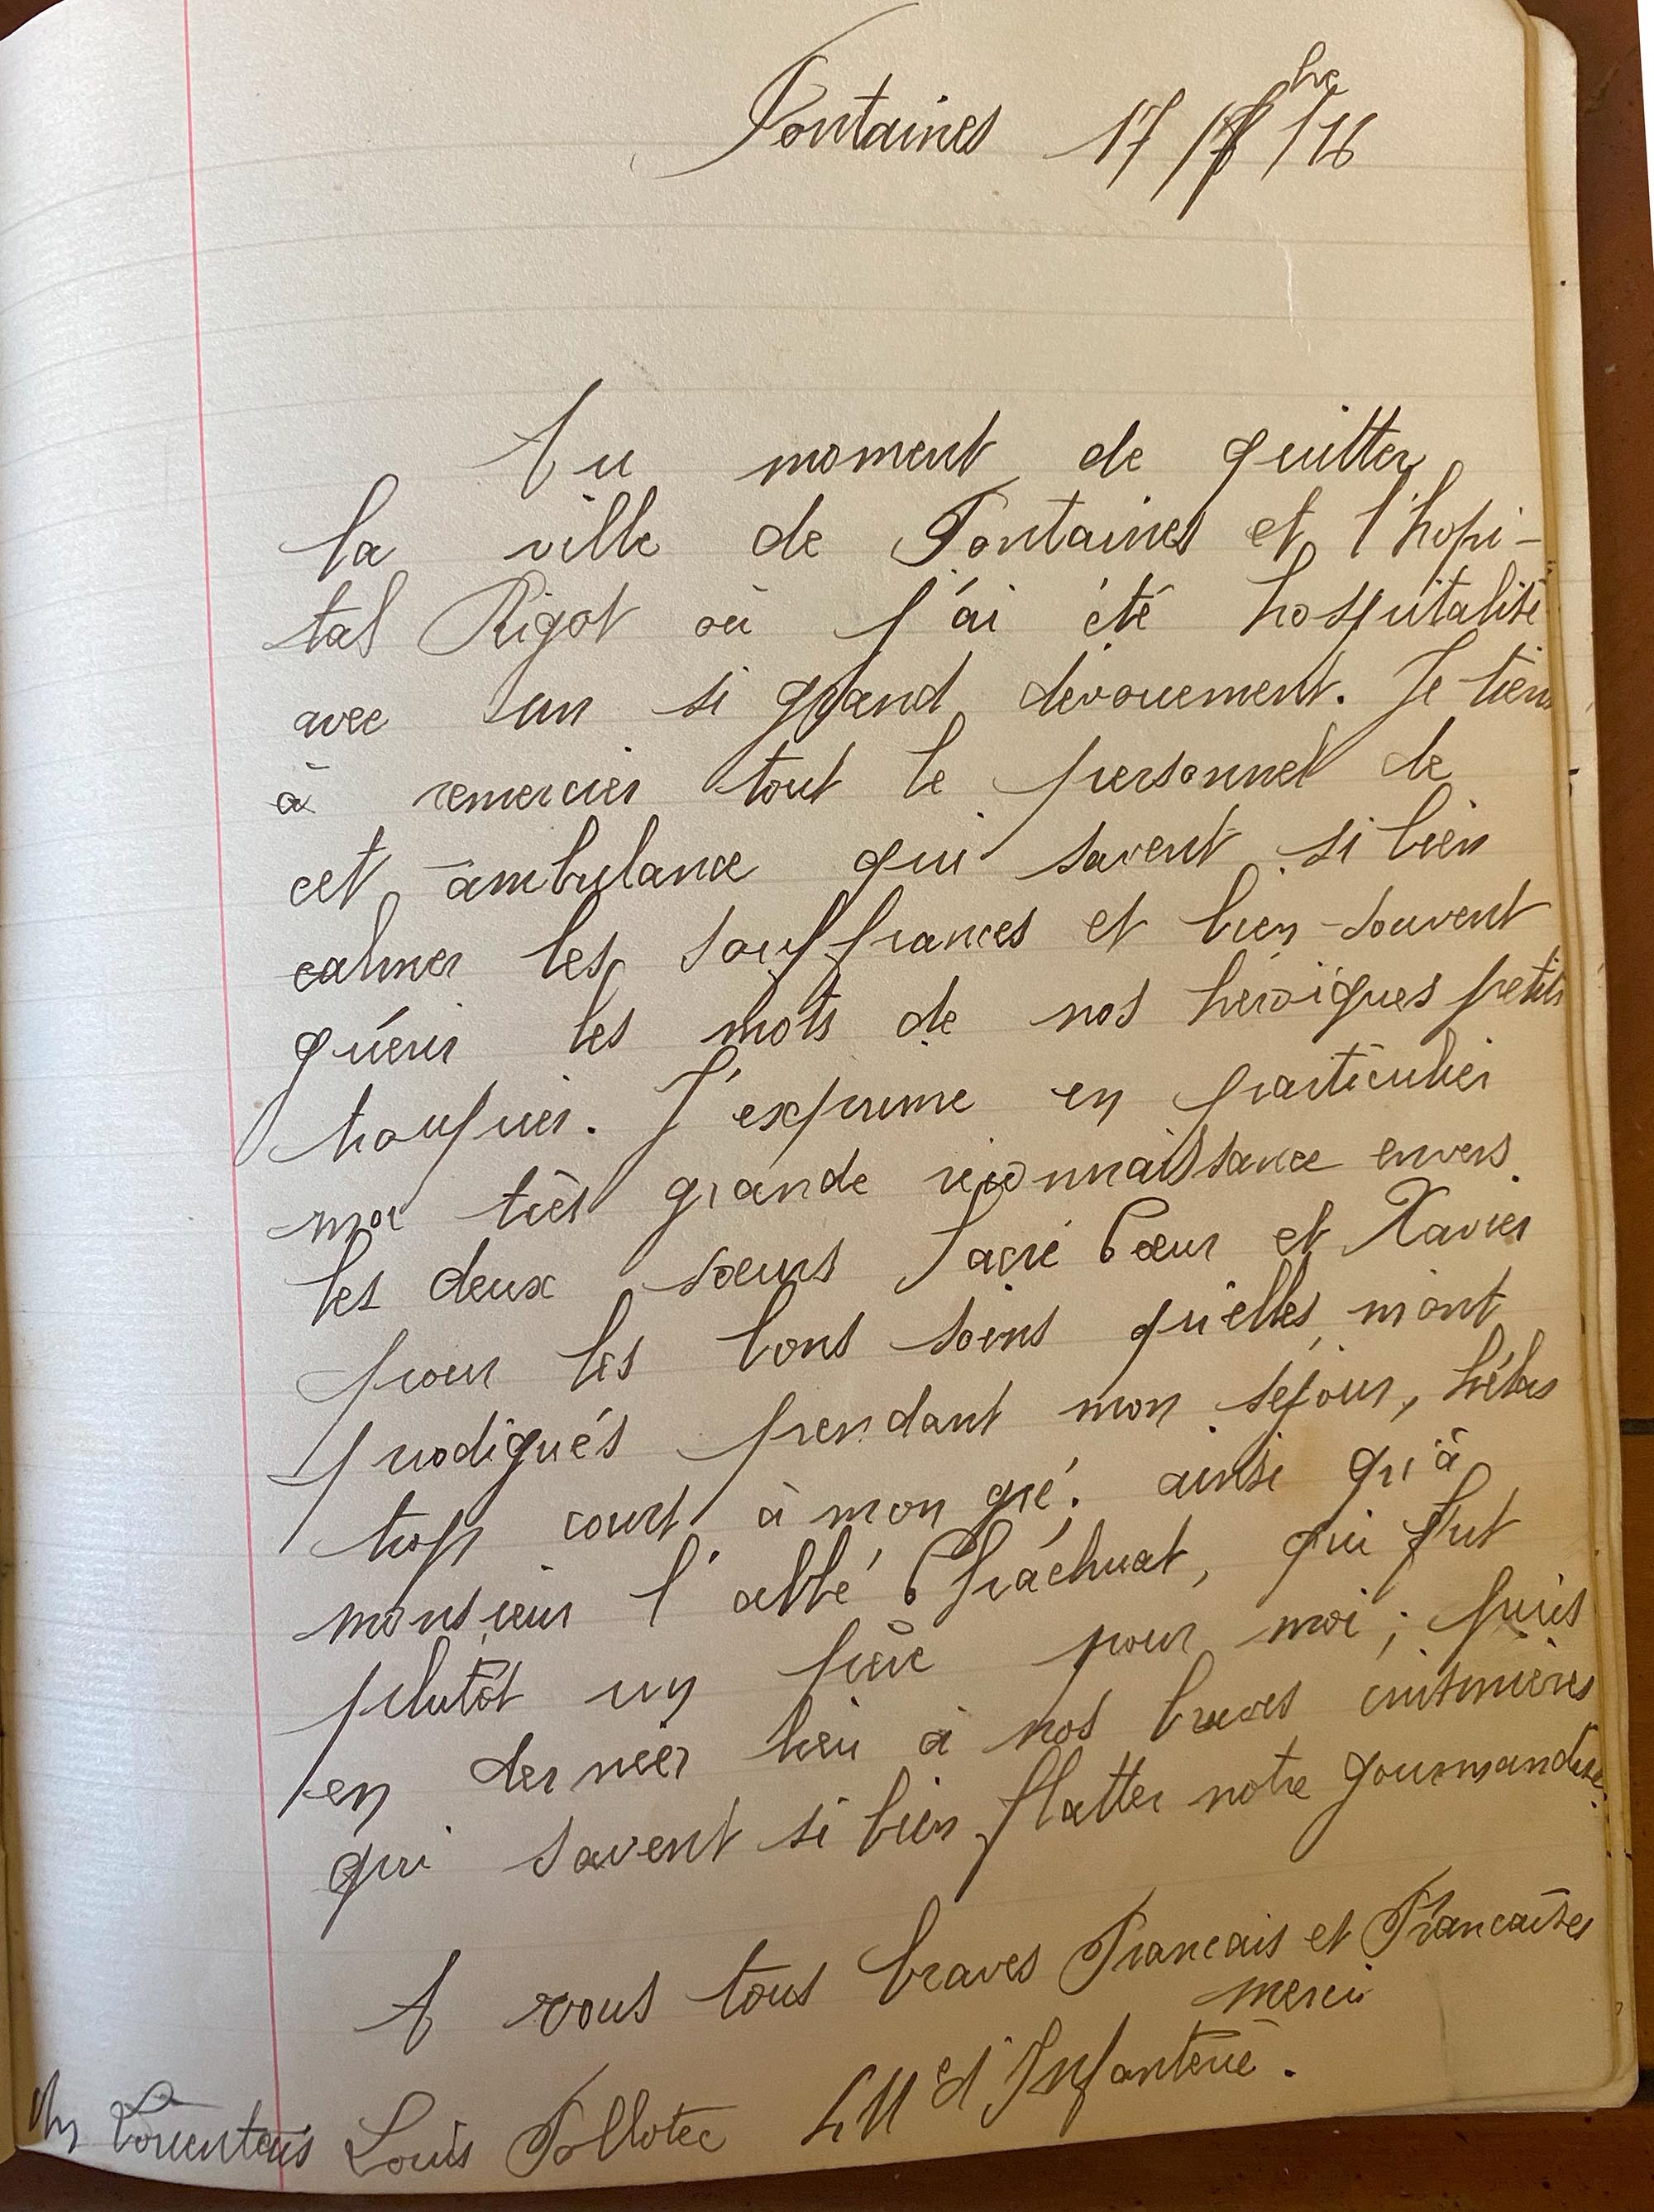 Fontaines 17/7bre/16
Au moment de quitter
la ville de Fontaines et l'hopi-
tal Rigot où j'ai été hospitalisé
avec un si grand dévouement. Je tiens
à remercier tout le personnel de
cet ambulance qui savent si bien
calmer les souffrances et bien-souvent
guérir les mots de nos héroïques petits
troupier. J'exprime en particulier
ma très grande reconnaissance envers
les deux sœurs Sacré Cœur et Xavier
pour les bons soins qu'elles m'ont
prodigués pendant mon séjour, hélas
trop court à mon gré. ainsi qu'à
monsieur l'abbé Chrachuat, qui fut
plutôt un père pour moi; puis
en dernier lieu à nos braves cuisinières
qui savent si bien flatter notre gourmandise.
A vous tous braves Francais et Francaises
merci
Un Lorientais Louis Follotec d'Infanterie.